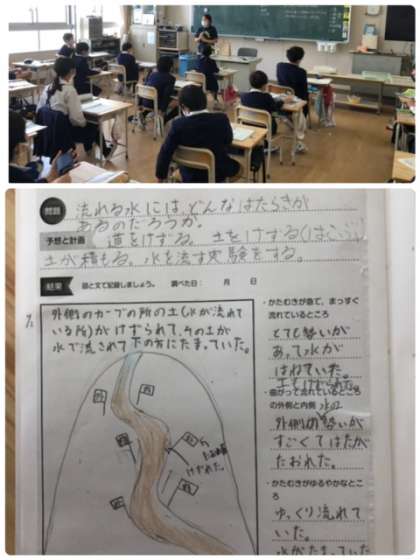 問題
流れる水には、どんなはたらきが
あるのだろうか。
予想と計画
道をけずる。土をけずる(はこぶ)
土が積もる。水を流す実験をする。
結果
図と文で記録しましょう。 調べた日: 月 日
外側のカーブの所の土(水が流れて
いる所)がけずられて、その土が
水で流されて下の方にたまっていた。
けずれた。
・かたむきが急で、まっすぐ
流れているところ
とても勢いが
あって水が
はねていた。
土もけずられた。
・曲がって流れているところ
の外側と内側
水の
外側が勢いが
すごくてはたが
たおれた。
・かたむきがゆるやかなとこ
ろ
ゆっくり流れて
いた。
水がたまっていた